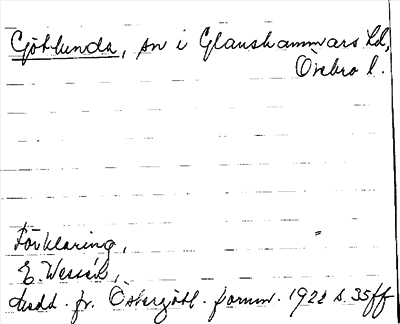 Götlunda, sn i Glanshammars hd,
Örebro l.
Förklaring,
E. Wessén,
Medd. fr. Östergötl. fornm. 1922 s. 35ff